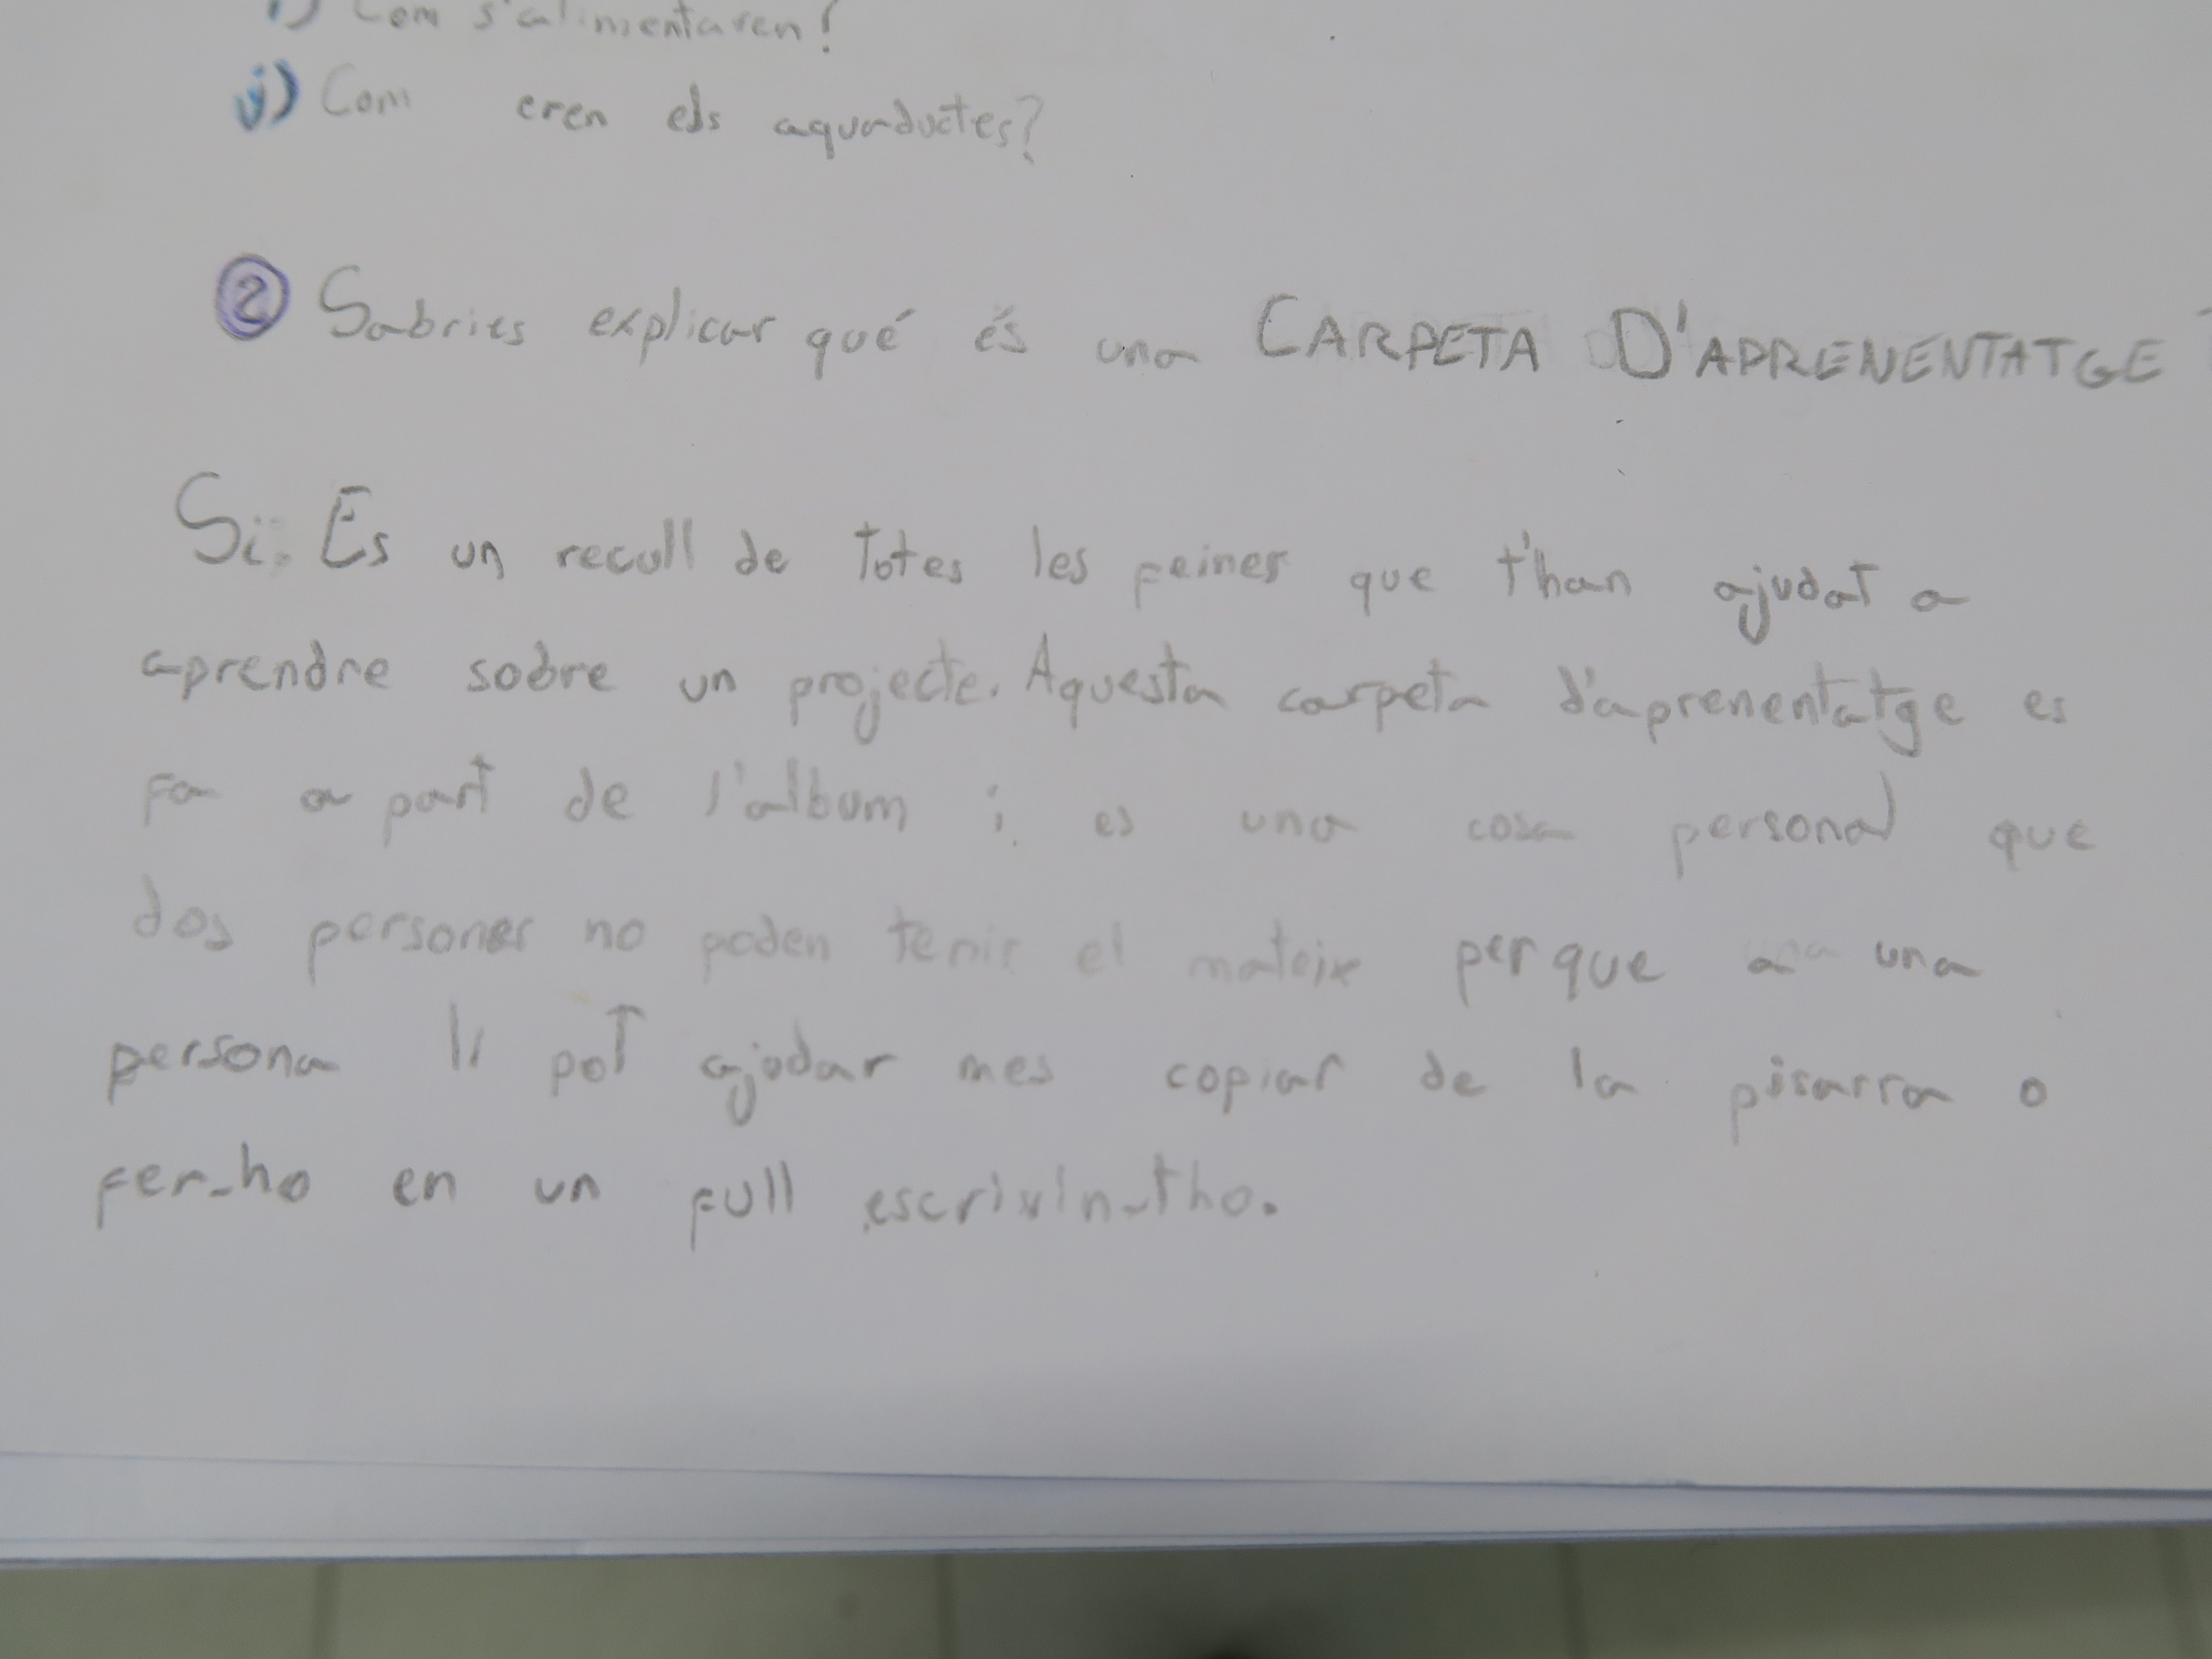 i) Com s'alimentaven?
j) Com eren els aquaductes?
2 Sabries explicar qué és una CARPETA D'APRENENTATGE
Si. Es un recull de totes les feines que t'han ajudat a
aprendre sobre un projecte. Aquesta carpeta d'aprenentatge es
fa a part de l'album i es una cosa personal que
dos persones no poden tenir el mateix perque a una
persona li pot ajudar mes copiar de la pisarra o
fer-ho en un full escrivin-tho.